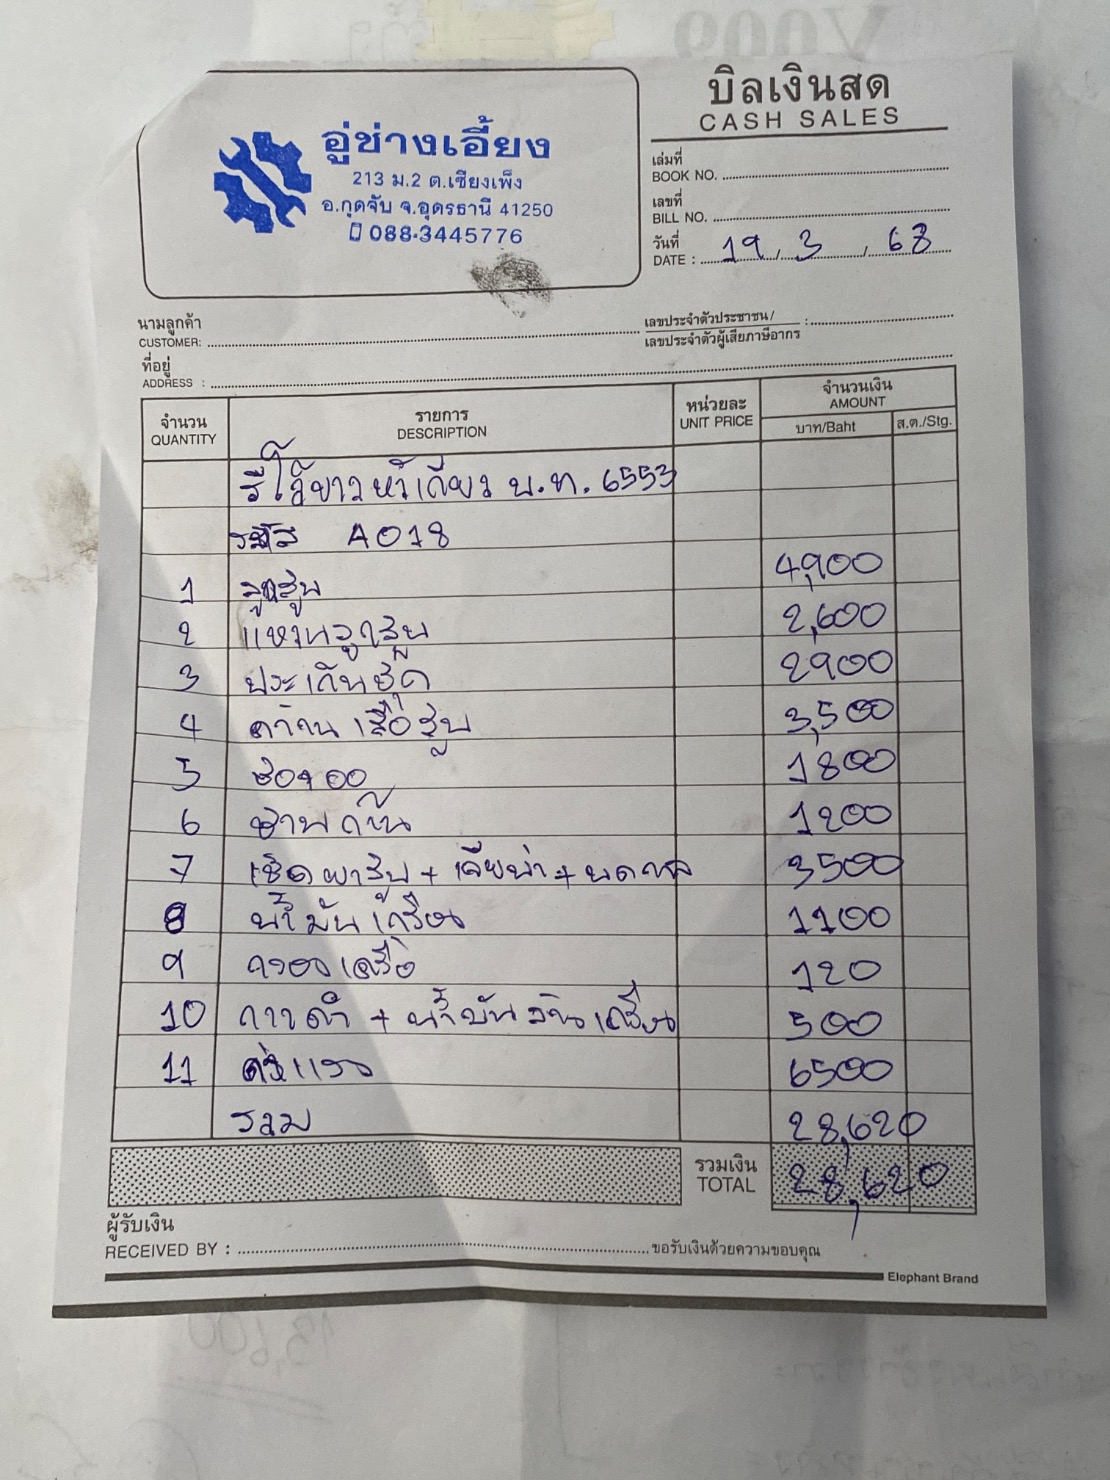 บิลเงินสด
CASH SALES
อู่ช่างเอี้ยง
213 ม.2 ต.เชียงเพ็ง
อ.กุดจับ จ.อุดรธานี 41250
088-3445776
เล่มที่
BOOK NO.
เลขที่
BILL NO.
วันที่
DATE : 19 / 3 / 68
นามลูกค้า
CUSTOMER:
เลขประจำตัวประชาชน/
เลขประจำตัวผู้เสียภาษีอากร :
ที่อยู่
ADDRESS :
จำนวน QUANTITY รายการ DESCRIPTION หน่วยละ UNIT PRICE จำนวนเงิน AMOUNT
บาท/Baht ส.ต./Stg.
รีโว้ขาวหัวเดียว บ.ท. 6553
รหัส A018
1 ลูกสูบ 4,900
2 แหวนลูกสูบ 2,600
3 ประเก็นชุด 2900
4 คว้าน เสื้อสูบ 3,500
5 ช้อออ 1800
6 ชาบก้าน 1200
7 3500
8 น้ำมันเครื่อง 1100
9 กรองเครื่อง 120
10 กาวดำ + น้ำมันล้างเครื่อง 500
11 ค่าแรง 6500
รวม 28,620
รวมเงิน
TOTAL 28,620
ผู้รับเงิน
RECEIVED BY : ขอรับเงินด้วยความขอบคุณ
Elephant Brand